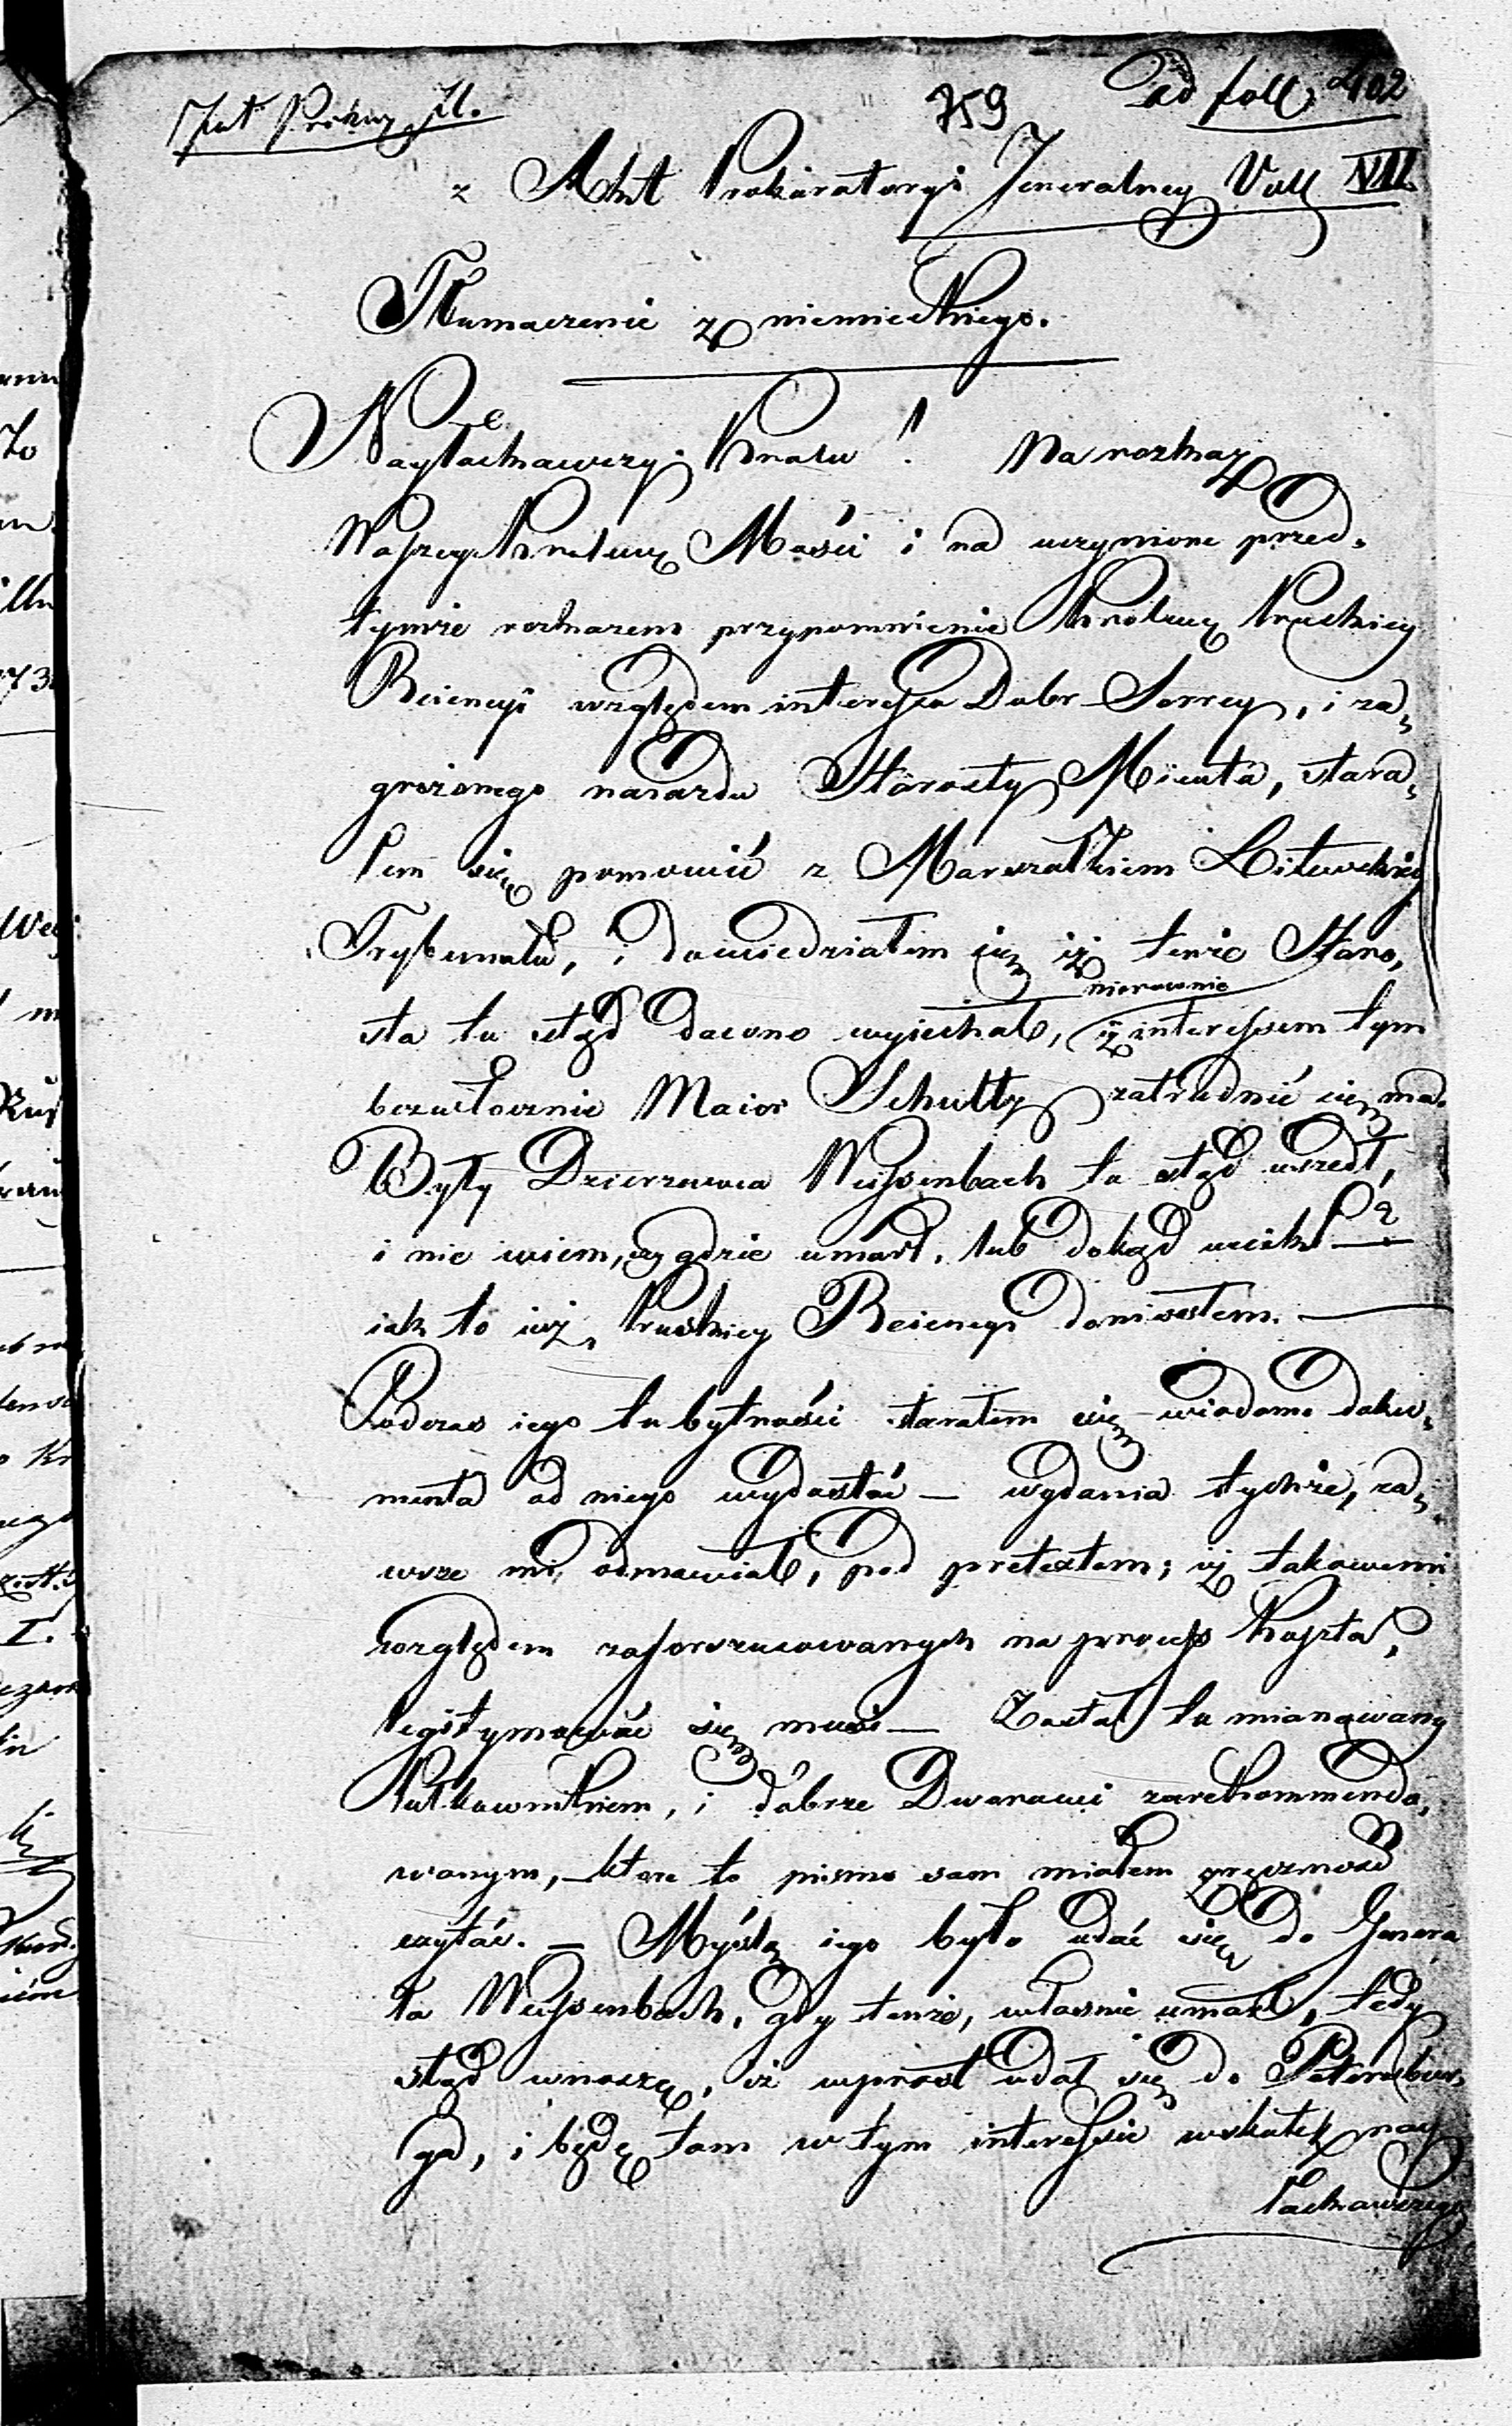 759
Ad foll 402
z Akt Prokuratoryi Jeneralney Voll VII.
Tłumaczenie z niemieckiego.
Nayłaskawszy Krolu! Na rozkaz
Waszey Krolewę Mości i na uczynione przed,
tymże rozkazem przypomnienie Krolewę Pruskiey
Reiencyi względem interessu Dobr Serrey, i za,
grożonego naiazdu Starosty Mieuta, stara,
łem się pomowić z Marszałkiem Litewskiey
Trybunału, i dowiedziałem się iż tenże Staro,
nierownie
sta tu stąd dawno wyiechał, iż interessem tym
bezwłocznie Maior Schultz zatrudnić się ma.
Były Dzierzawca Weissenbach tu stąd uszedł,
i nie wiem, czy gdzie umarł, lub dokąd uciekł —
iak to iuż Pruskiey Reiencyi doniosłem. —
Podczas iego tu bytności starałem się wiadome doku,
menta od niego wydostać — wydania tychże, za,
wsze mi odmawiał, pod pretextem; iż takowemi
względem zaforszusowanych na process koszta,
legitymować się musi — Został tu mianowany
Pułkownikiem, i dobrze Dworowi zarekommendo,
wanym, — ktore to pismo sam miałem zręczność
czytać. — Myślą iego było udać się do Genera
ła Weissenbach, gdy tenże, właśnie umarł, tedy
stąd wnoszę, iż wprost udał się do Petersbur,
ga, i będę tam w tym interessie wskutek nay
łaskawszego